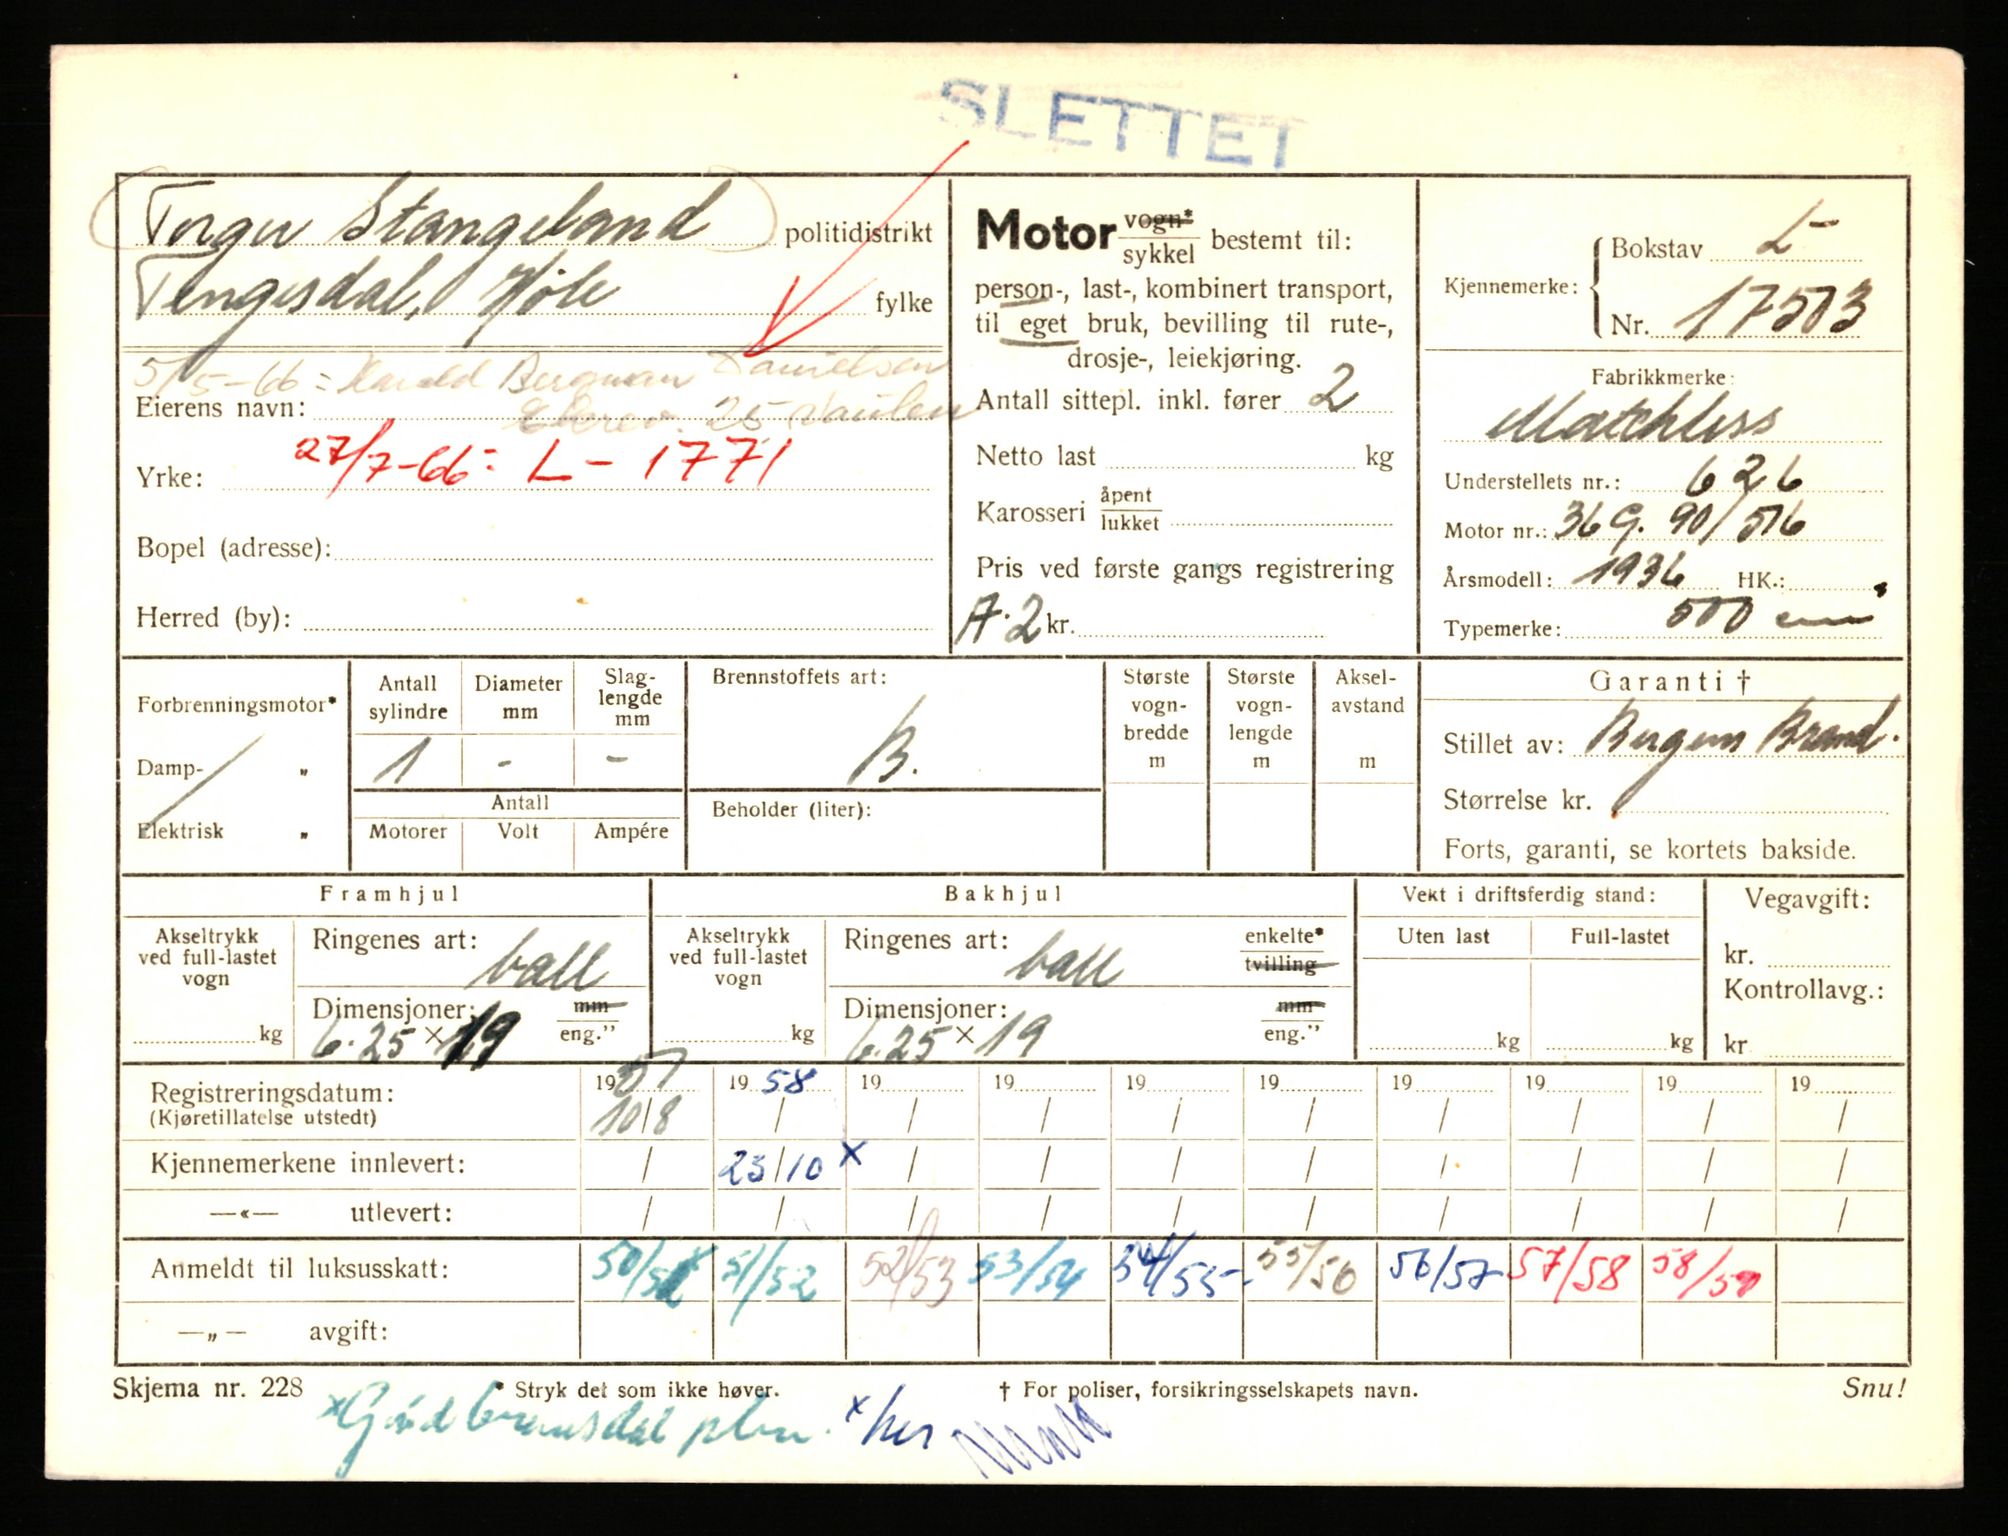 SLETTET
Torger Stangeland politidistrikt
Tengesdal, Høle fylke
5/5-66 = Harald Bergman Danielsen
Eierens navn: 25
27/7-66: L-1771
Yrke:
Bopel (adresse):
Herred (by):
Motor vogn*/sykkel bestemt til:
person-, last-, kombinert transport,
til eget bruk, bevilling til rute-,
drosje-, leiekjøring.
Antall sittepl. inkl. fører 2
Netto last kg
Karosseri åpent/lukket
Pris ved første gangs registrering
A.2 kr.
Kjennemerke: Bokstav L-
Nr. 17503
Fabrikkmerke:
Matchless
Understellets nr.: 626
Motor nr.: 36 G. 90/516
Årsmodell: 1936 HK.:
Typemerke: 500 ccm
Forbrenningsmotor*
Damp- "
Elektrisk "
Antall sylindre Diameter mm Slag-lengde mm
1 - -
Antall
Motorer Volt Ampére
Brennstoffets art:
B.
Beholder (liter):
Største vogn-bredde m
Største vogn-lengde m
Aksel-avstand m
Garanti †
Stillet av: Bergens Brand.
Størrelse kr.
Forts, garanti, se kortets bakside.
Framhjul
Akseltrykk ved full-lastet vogn kg
Ringenes art: ball
Dimensjoner: mm/eng."
6.25 x 19
Bakhjul
Akseltrykk ved full-lastet vogn kg
Ringenes art: ball enkelte*/tvilling
Dimensjoner: mm/eng."
6.25 x 19
Vekt i driftsferdig stand:
Uten last Full-lastet
kg kg
Vegavgift:
kr.
Kontrollavg.:
kr
Registreringsdatum: 1951 1958 19 19 19 19 19 19 19 19
(Kjøretillatelse utstedt) 10/8 / / / / / / / / /
Kjennemerkene innlevert: / 23/10 x / / / / / / / /
—«— utlevert: / / / / / / / / / /
Anmeldt til luksusskatt: 50/51 x 51/52 52/53 53/54 54/55 55/56 56/57 57/58 58/59
—„— avgift:
Skjema nr. 228 * Stryk det som ikke høver. † For poliser, forsikringsselskapets navn. Snu!
x x her